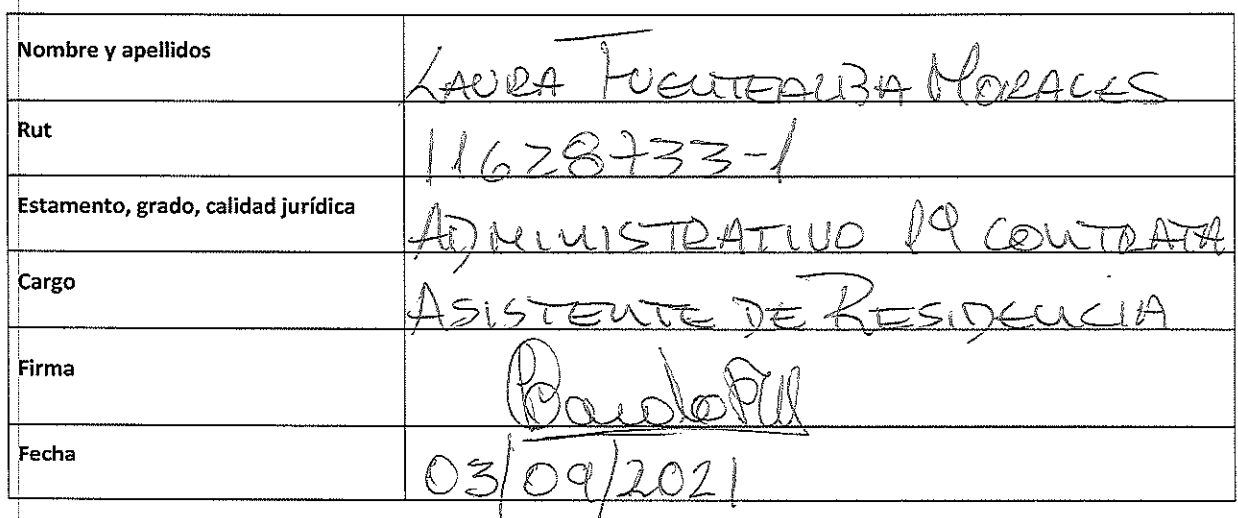 Nombre y apellidos LAURA FUENTEALBA MORALES
Rut 11628733-1
Estamento, grado, calidad jurídica ADMINISTRATIVO CONTRATA
Cargo ASISTENTE DE RESIDENCIA
Firma
Fecha 03/09/2021